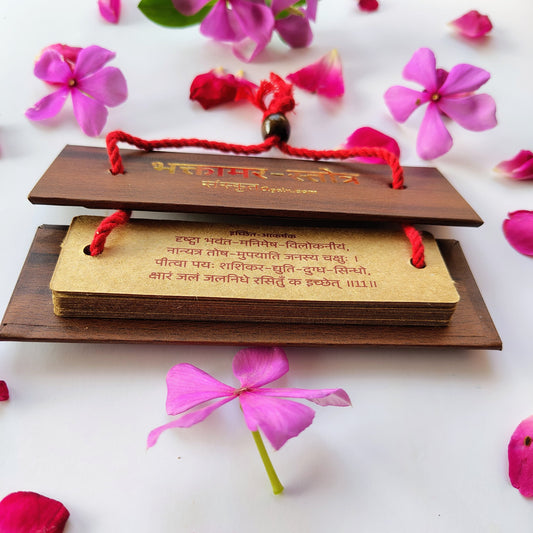 भक्तामर-स्तोत्र
इच्छित-आकर्षक
दृष्ट्वा भवंत-मनिमेष-विलोकनीयं,
नान्यत्र तोष-मुपयाति जनस्य चक्षुः ।
पीत्वा पयः शशिकर-द्युति-दुग्ध-सिन्धो,
क्षारं जलं जलनिधे रसितुँ क इच्छेत् ॥11॥